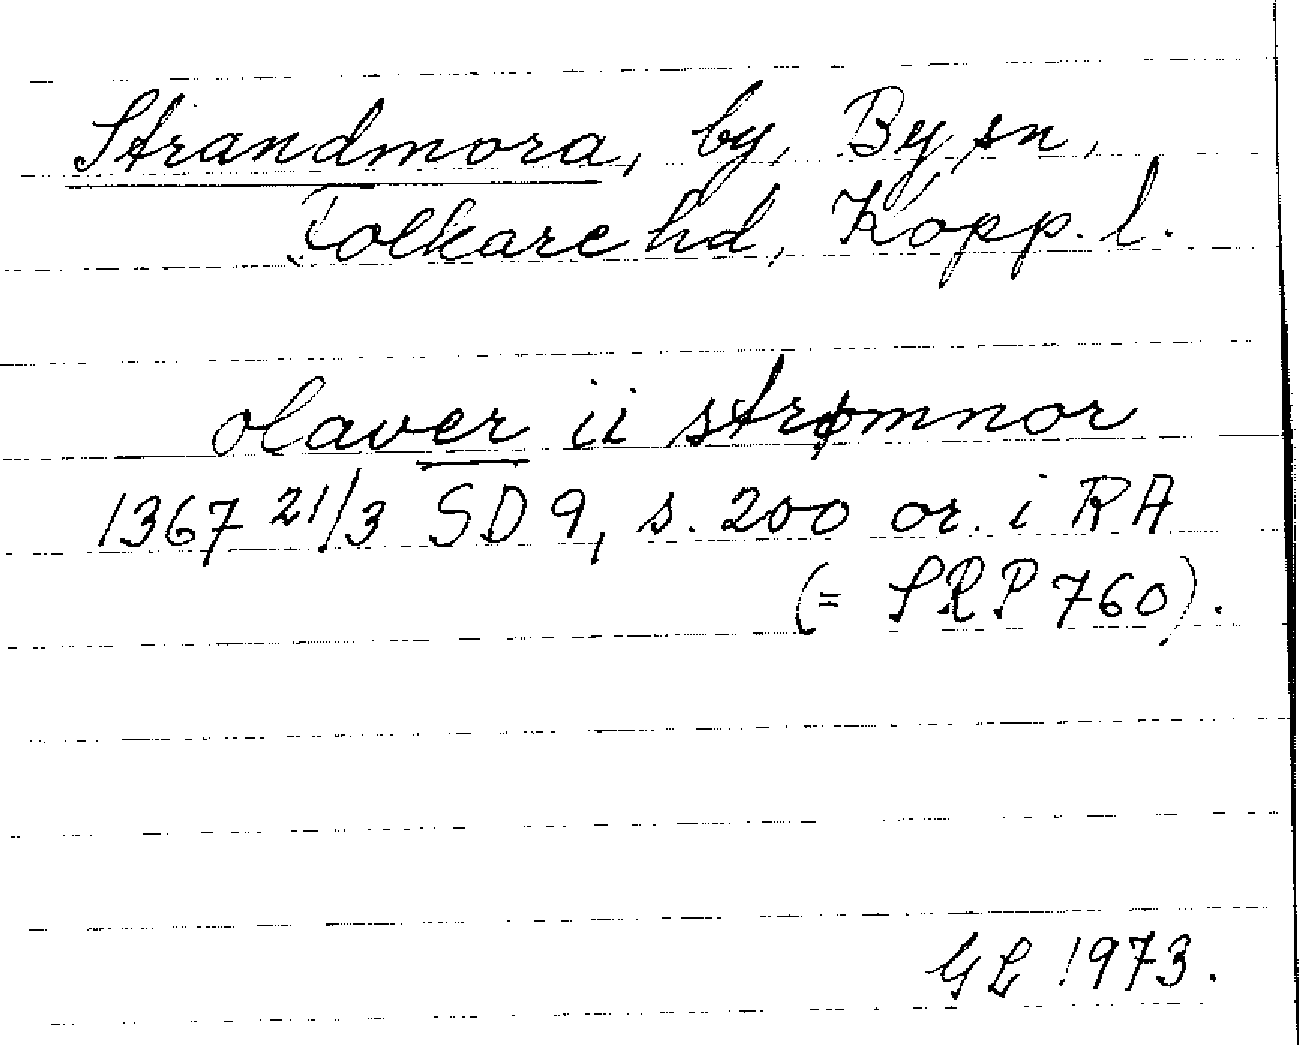 Strandmora, by, By sn,
Folkare hd, Kopp. l.
olaver ii strømnor
1367 21/3 SD 9, s. 200 or. i RA
(= SRP 760).
GL 1973.